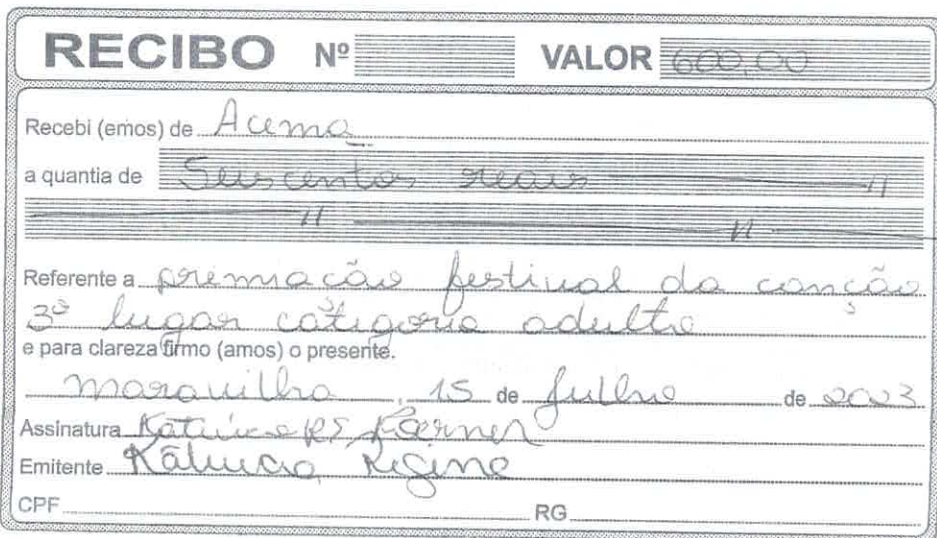 RECIBO Nº VALOR 600,00
Recebi (emos) de Acema
a quantia de Seiscentos reais
Referente a premiação festival da canção
3º lugar categoria adulto
e para clareza firmo (amos) o presente.
Maravilha, 15 de Julho de 2003
Assinatura
Emitente Regina
CPF RG